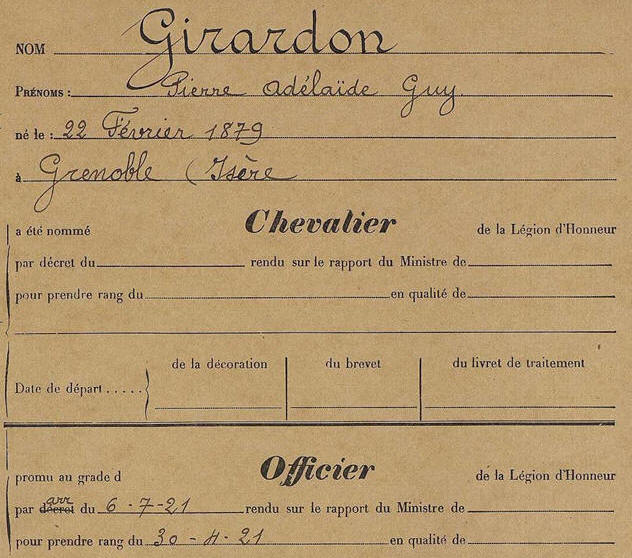 NOM Girardon
PRÉNOMS : Pierre Adélaïde Guy.
né le : 22 Février 1879
à Grenoble (Isère
a été nommé Chevalier de la Légion d'Honneur
par décret du rendu sur le rapport du Ministre de
pour prendre rang du en qualité de
de la décoration du brevet du livret de traitement
Date de départ .....
promu au grade d Officier de la Légion d'Honneur
arr
par décret du 6-7-21 rendu sur le rapport du Ministre de
pour prendre rang du 30-4-21 en qualité de